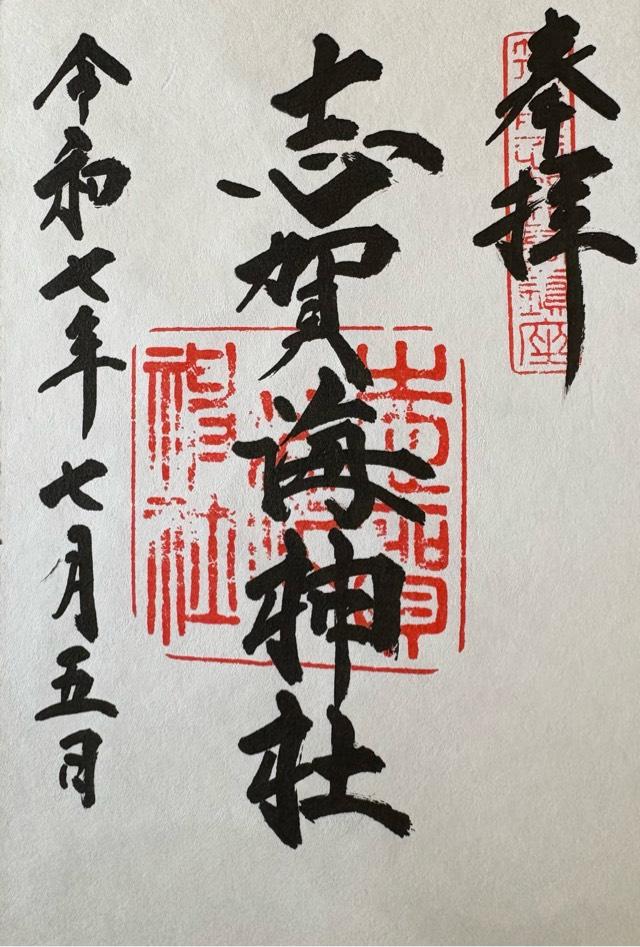 奉拝
志賀海神社
令和七年七月五日
志賀海神社